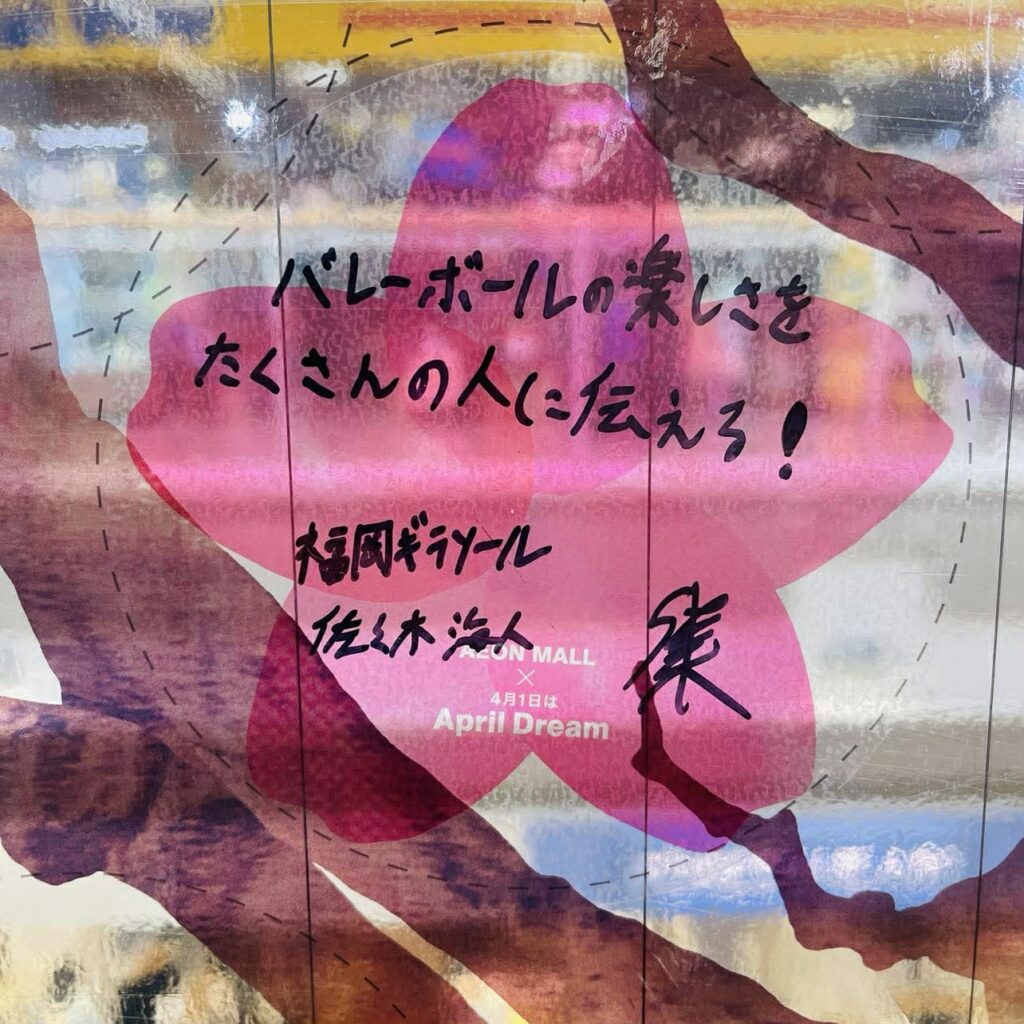 バレーボールの楽しさを
たくさんの人に伝えろ!
福岡ギラソール
佐々木 海人
AEON MALL
×
4月1日は
April Dream